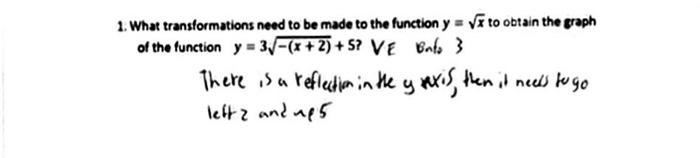 1. What transformations need to be made to the function y = √x to obtain the graph
of the function y = 3√-(x + 2) + 5? VE by 3
There is a reflection in the y axis, then it needs to go
left 2 and up 5